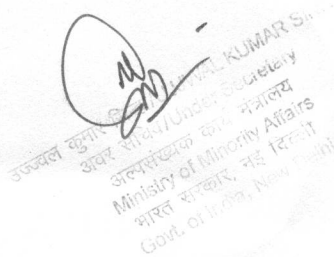 उज्ज्वल कुमार KUMAR
अवर सचिव/Under Secretary
अल्पसंख्यक कार्य मंत्रालय
Ministry of Minority Affairs
भारत सरकार, नई दिल्ली
Govt. of India, New Delhi